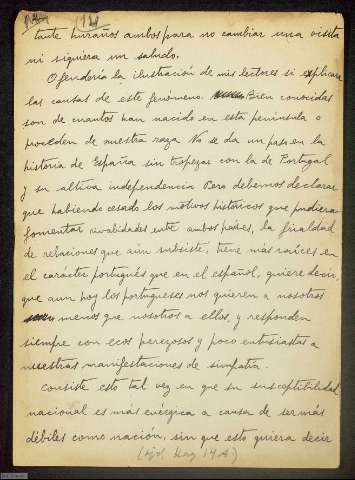 (14)
tante huraños ambos para no cambiar una visita
ni siquiera un saludo.
Ofendería la ilustración de mis lectores si explicara
las causas de este fenómeno. Bien conocidas
son de cuantos han nacido en esta península o
proceden de nuestra raza. No se da un paso en la
historia de España sin tropezar con la de Portugal
y su altiva independencia. Pero debemos declarar
que habiendo cesado los motivos históricos que pudieran
fomentar rivalidades entre ambos países, la frialdad
de relaciones que aún subsiste, tiene más raíces en
el carácter portugués que en el español, quiere decir,
que aun hoy los portugueses nos quieren a nosotros
menos que nosotros a ellos, y responden
siempre con ecos perezosos y poco entusiastas a
nuestras manifestaciones de simpatía.
Consiste esto tal vez en que su susceptibilidad
nacional es más enérgica a causa de ser más
débiles como nación, sin que esto quiera decir
(sijo Hay 14 A)